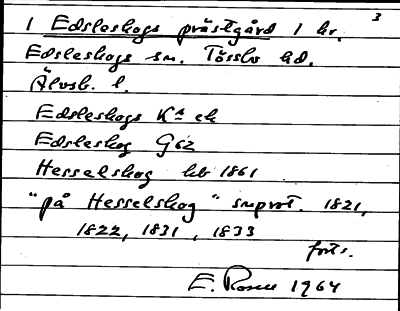 3
1 Edsleskogs prästgård 1 kr.
Edsleskogs sn. Tössbo hd.
Älvsb. l.
Edsleskogs Ka ek
Edsleskog G62
Hesselskog hb 1861
"på Hesselskog" snprot. 1821,
1822, 1831, 1833
forts.
E. Rosen 1964